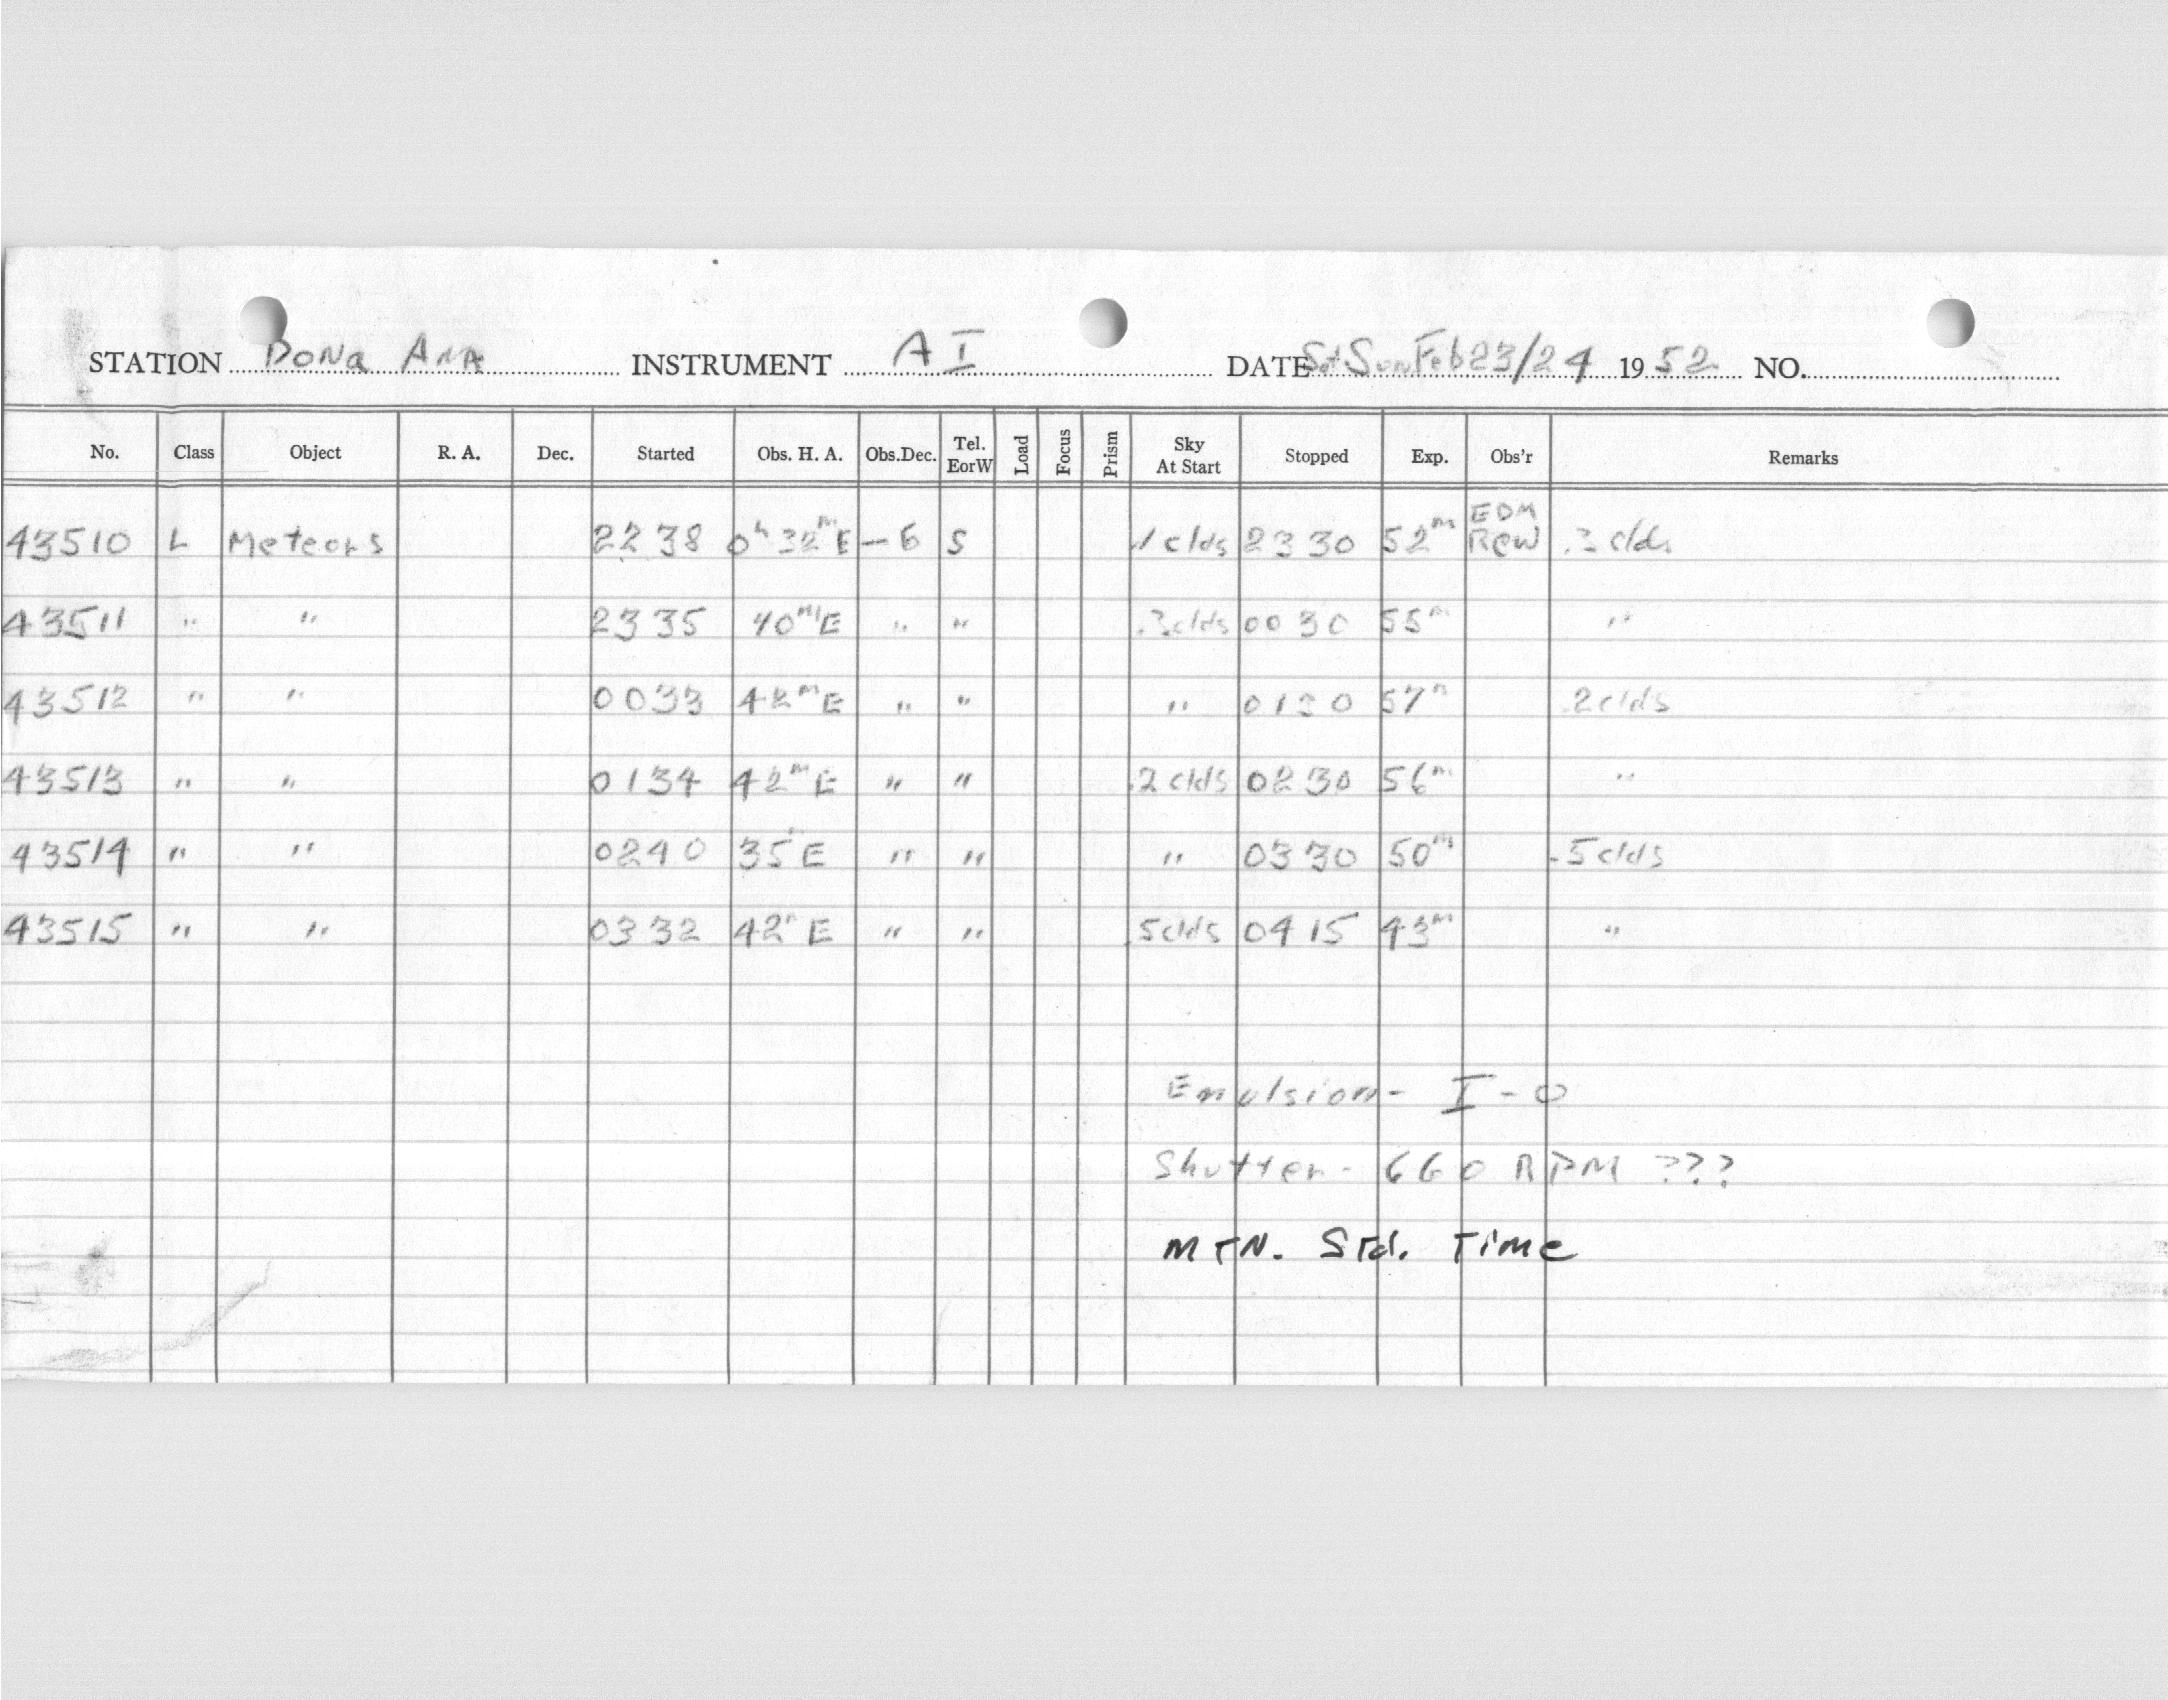 STATION Dona Ana INSTRUMENT A I DATE Sat Sun Feb 23/24 19 52 NO.
No. Class Object R. A. Dec. Started Obs. H. A. Obs.Dec. Tel. EorW Load Focus Prism Sky At Start Stopped Exp. Obs'r Remarks
43510 L Meteors 2238 0h 32m E -6 S .1 clds 2330 52m EDM RCW .3 clds
43511 " " 2335 40m E " " .3 clds 0030 55m "
43512 " " 0033 42m E " " " 0130 57m .2 clds
43513 " " 0134 42m E " " .2 clds 0230 56m "
43514 " " 0240 35 E " " " 0330 50m .5 clds
43515 " " 0332 42m E " " .5 clds 0415 43m "
Emulsion - I-O
Shutter - 660 RPM ???
MTN. Std. Time